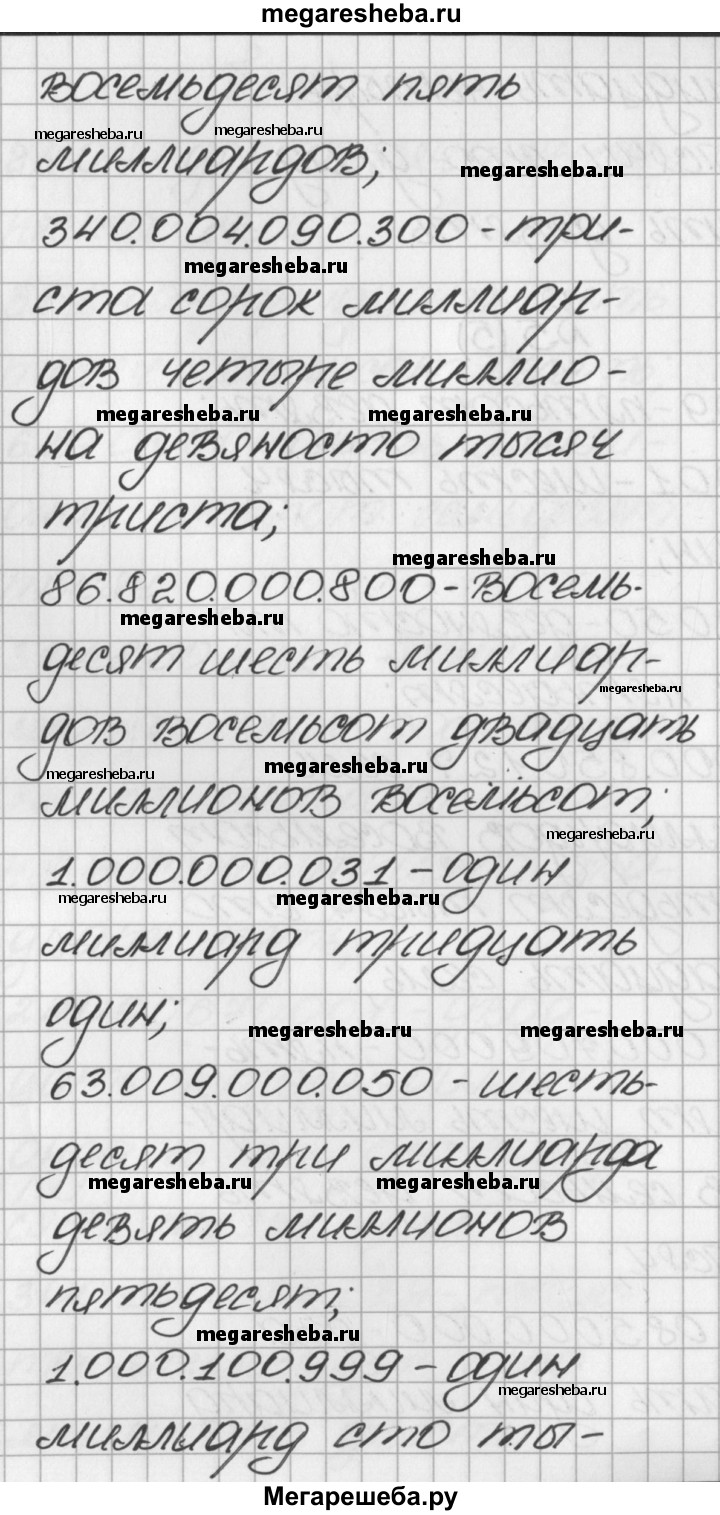 megaresheba.ru
восемьдесят пять
megaresheba.ru megaresheba.ru
миллиардов; megaresheba.ru
340.004.090.300 - три-
megaresheba.ru
ста сорок миллиар-
дов четыре миллио-
megaresheba.ru megaresheba.ru
на девяносто тысяч
триста;
megaresheba.ru
86.820.000.800 - восемь-
megaresheba.ru
десят шесть миллиар-
megaresheba.ru
дов восемьсот двадцать
megaresheba.ru megaresheba.ru
миллионов восемьсот;
megaresheba.ru
1.000.000.031 - один
megaresheba.ru megaresheba.ru
миллиард тридцать
один;
megaresheba.ru megaresheba.ru
63.009.000.050 - шесть-
десят три миллиарда
megaresheba.ru megaresheba.ru
девять миллионов
пятьдесят;
megaresheba.ru
1.000.100.999 - один
megaresheba.ru
миллиард сто ты-
Мегарешеба.ру